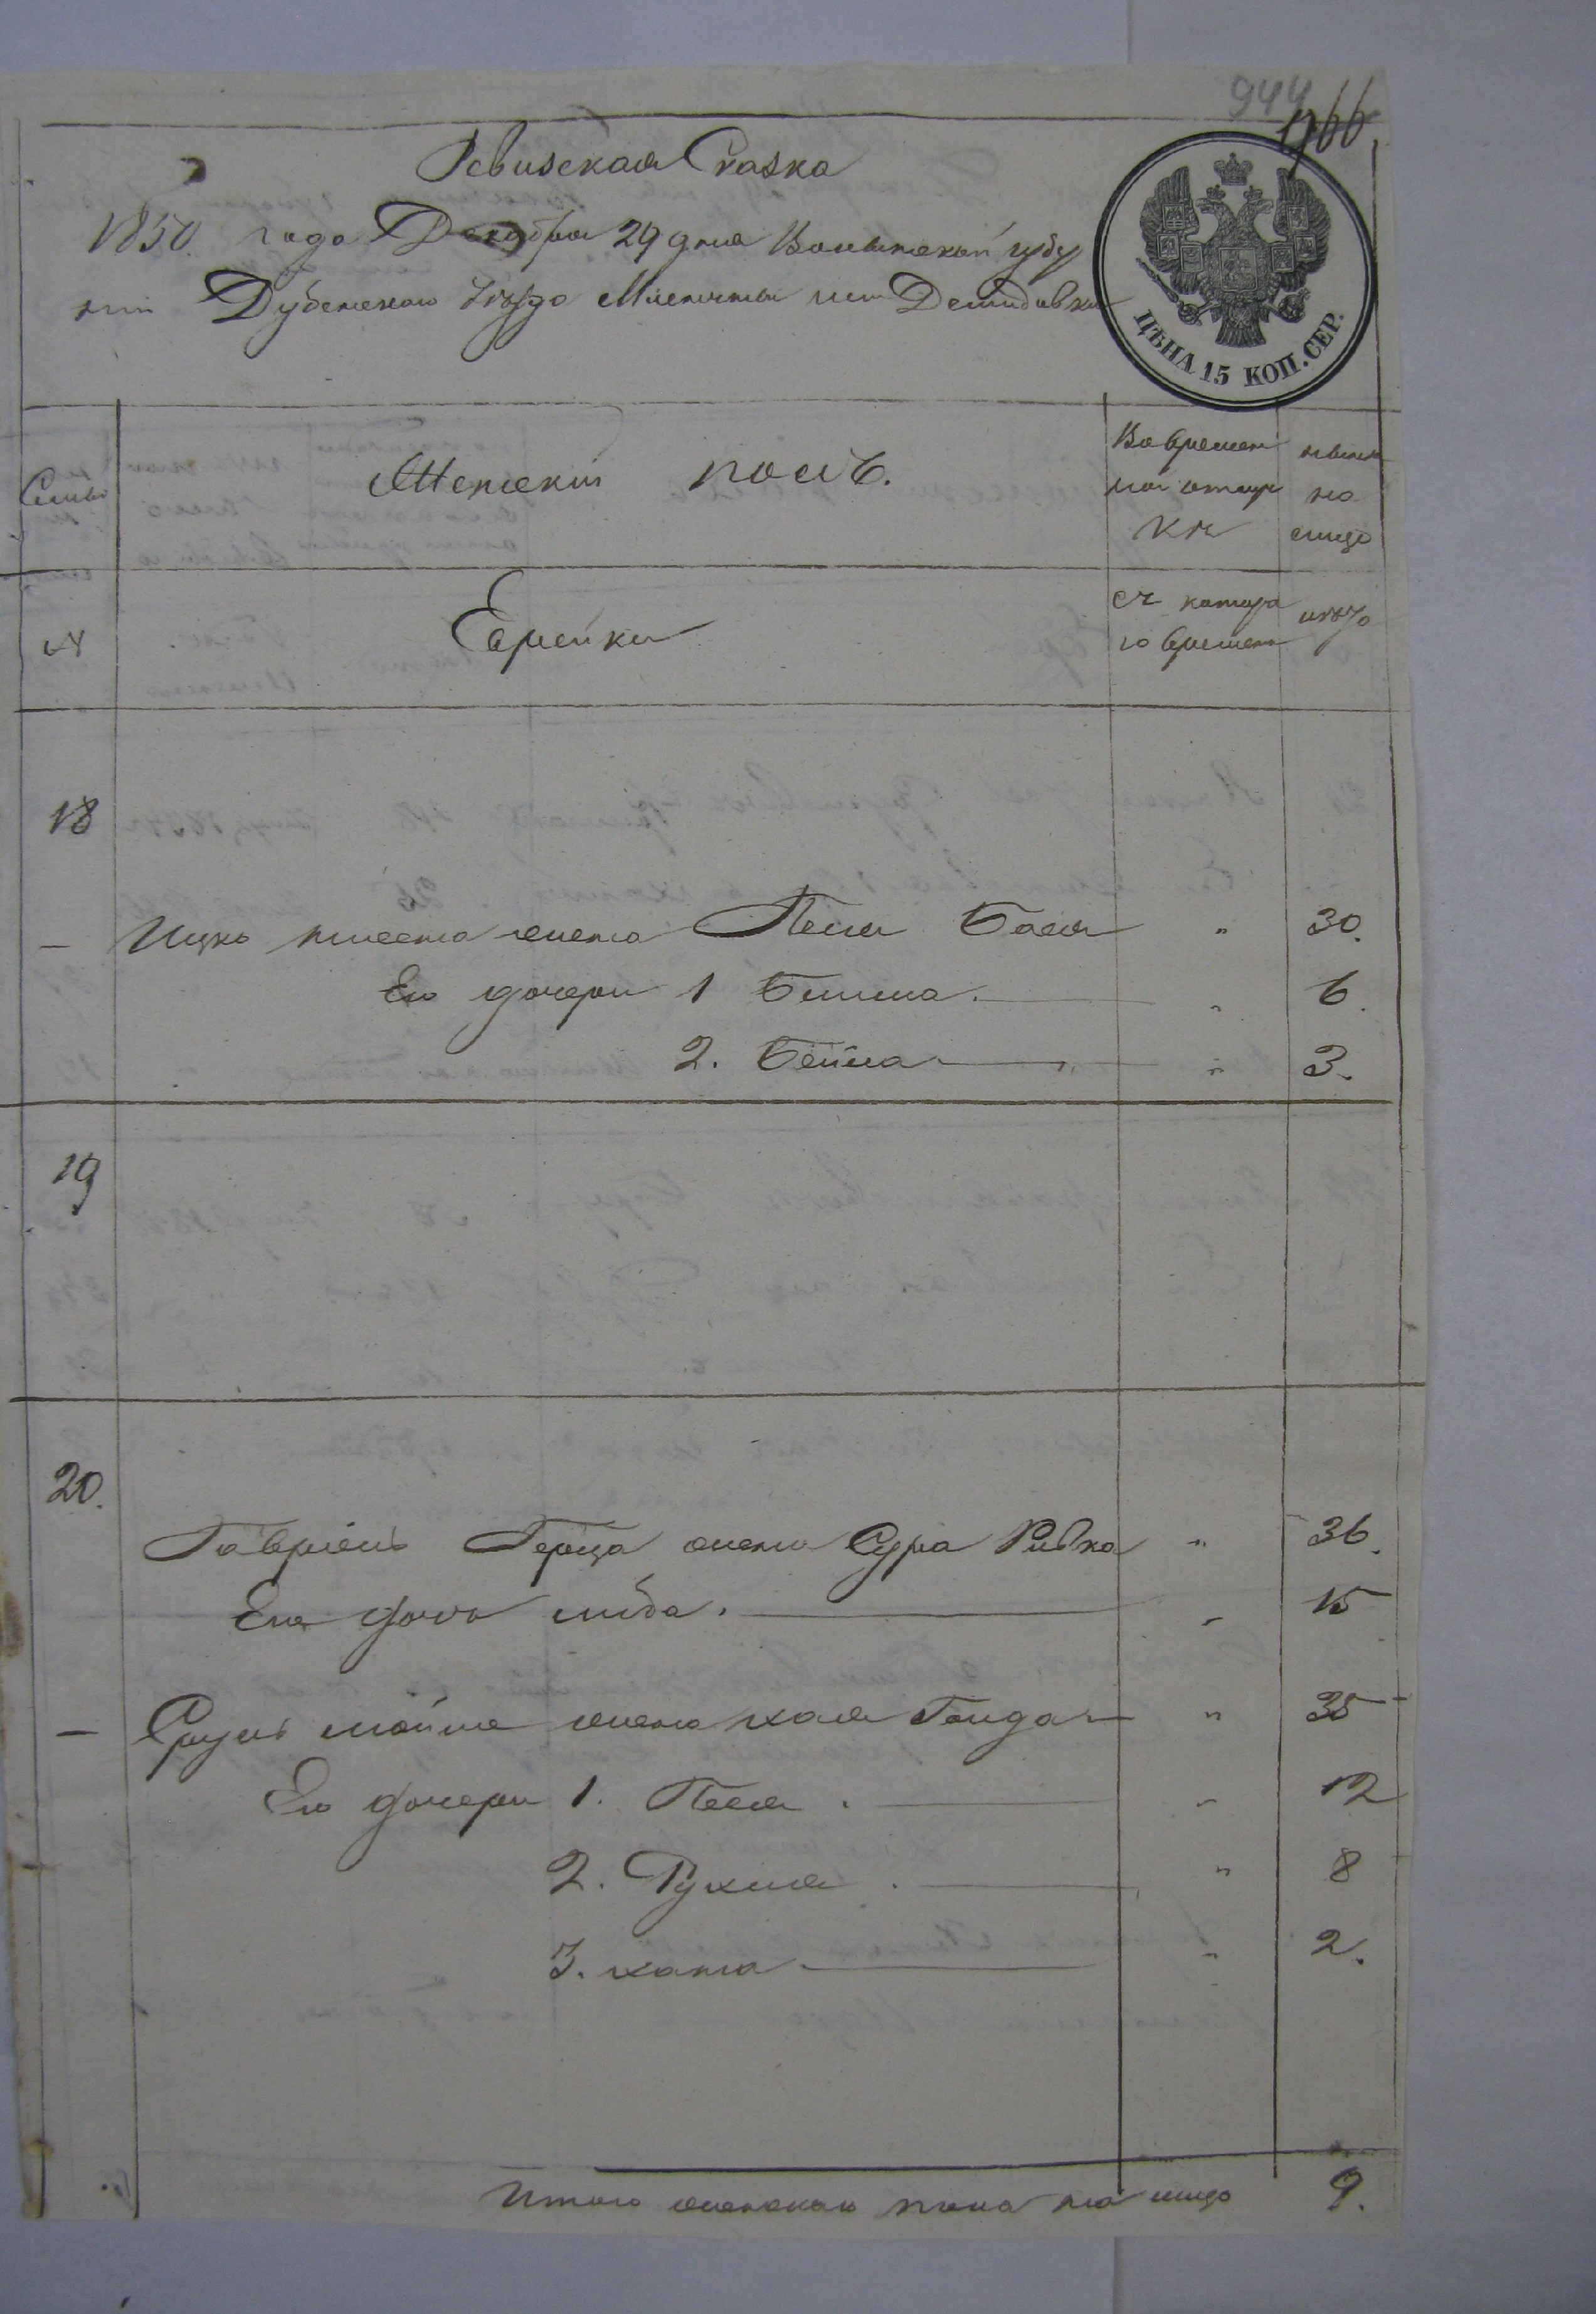 944
1766
Ревизская Сказка
1850 года Декабря 29 дня Волынской губер
нии Дубенского Уезда Местечки Демидовки
ЦѢНА 15 КОП. СЕР.
Семьи
Женский полъ.
Во времен
ной отлуч
кѣ
нынѣ
на
лицо
№
Еврейки
съ котора
го времени
лѣтъ
18
— Ицка жена Песя Бася " 30.
Его дочери 1 " 6.
2. Бейла " 3.
19
20.
Гавриеля Герша жена Сура Ривка " 36.
Его дочь " 15
— Сруля Мойше жена Хая Голда " 35
Его дочери 1. Песя. " 12
2. Рухля. " 8
3. хана " 2.
Итого женского пола на лицо 9.